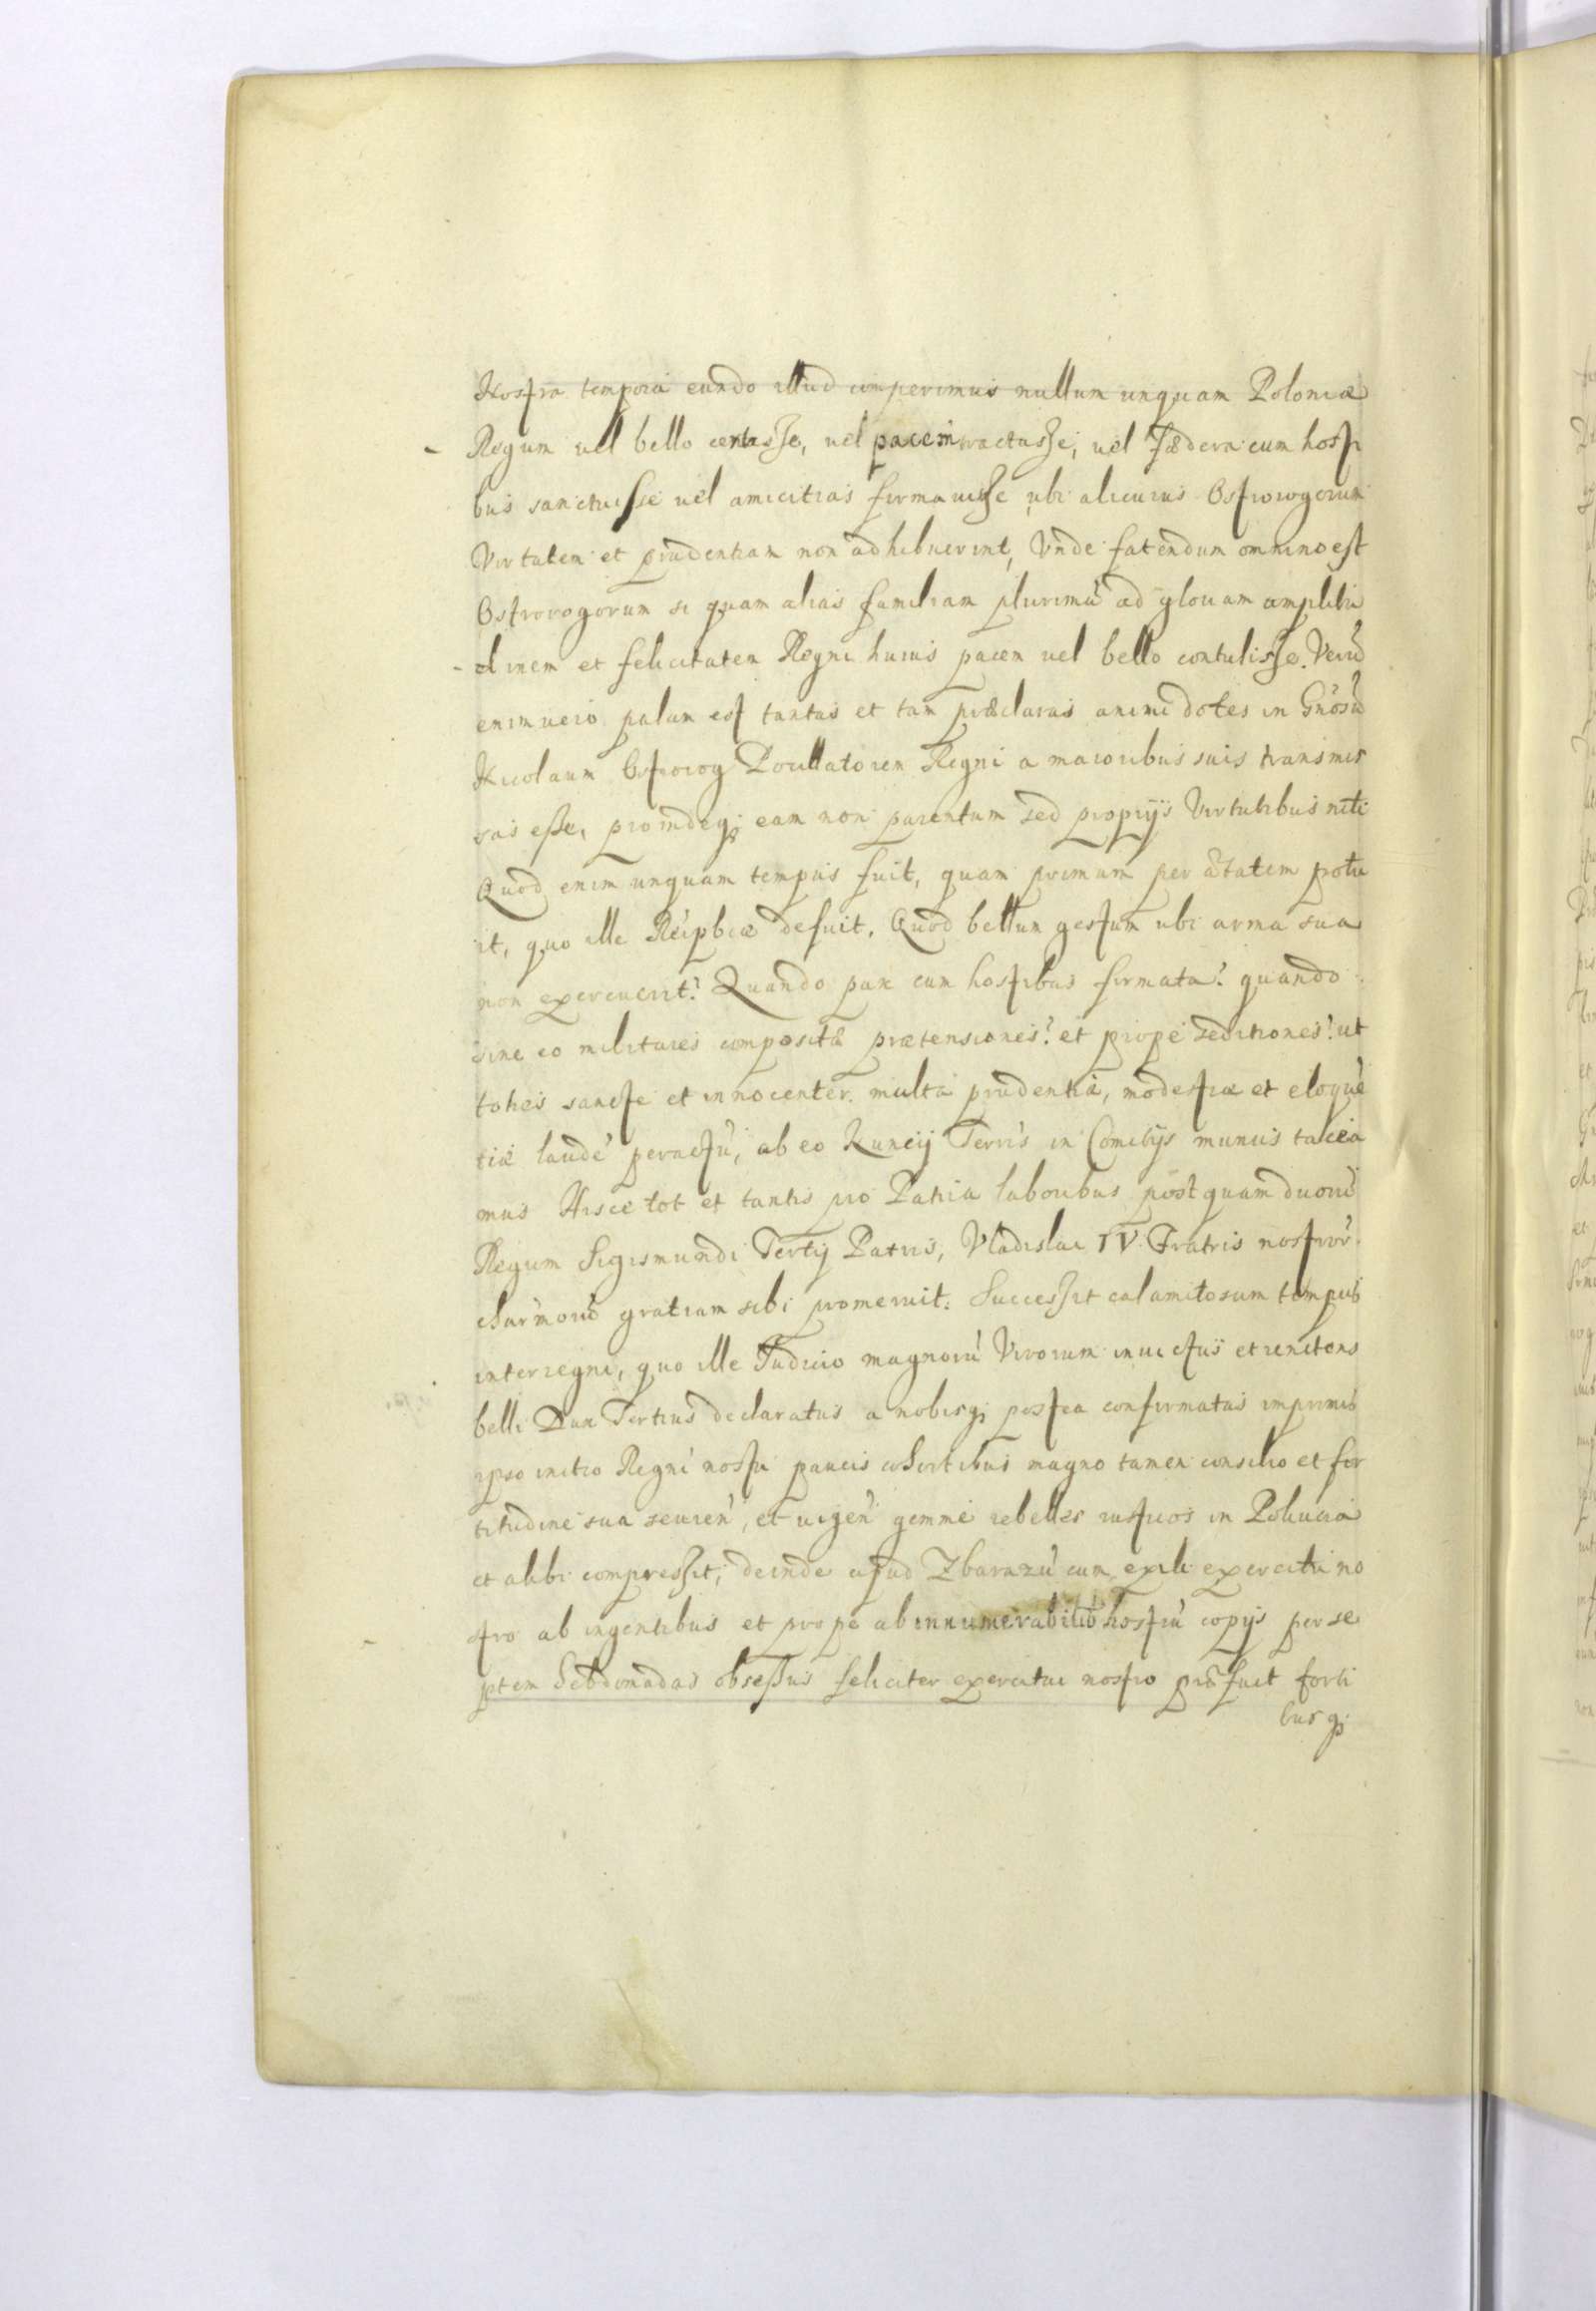 Nostra tempora eundo illud comperimus nullum unquam Poloniæ
Regum uel bello certasse, uel pacem tractasse, uel fædera cum hosti
bus sanctuisse uel amicitias firmauisse ubi alicuius Ostrorogorum
Virtutem et prudentiam non adhibuerint, Vnde fatendum omnino est
Ostrorogorum si quam alias familiam plurimū ad gloriam amplitu
dinem et felicitatem Regni huius pacem uel bello contulisse. Verū
enimuero palam est tantas et tam præclaras animi dotes in Gnosū
Nicolaum Ostrorog Pocillatorem Regni a maioribus suis transmis
sas esse, proindeq; eam non parentum sed proprijs Virtutibus niti
Quod enim unquam tempus fuit, quam primum per ætatem potu
it, quo ille Reipblcæ defuit. Quod bellum gestum ubi arma sua
non exercuerit? Quando pax cum hostibus firmata? quando
sine eo militares compositæ prætensiones? et prope seditiones? ut
toties sancte et innocenter multa prudentia, modestiæ et eloquē
tiæ laude peractū, ab eo Nuncij Terris in Comitijs munus tacea
mus Hisce tot et tantis pro Patria laboribus postquam duorū
Regum Sigismundi Tertij Patris, Vladislai IV. Fratris nostror
charmorū gratiam sibi promeruit. Successit calamitosum tempus
interregni, quo ille Judicio magnorū Virorum inuictus et renitens
belli Dux Tertius declaratus a nobisq; postea confirmatus imprimis
ipso initio Regni nostri paucis cohortibus magno tamen consilio et for
titudine sua seuien, et uigen gemme rebelles rusticos in Polucia
et alibi compressit, deinde apud Zbarazū cum exili exercitu no
stro ab ingentibus et prope ab innumerabilib hostiū copijs per se
ptem hebdomadas obsessus feliciter exercitui nostro præfuit forti
busq;